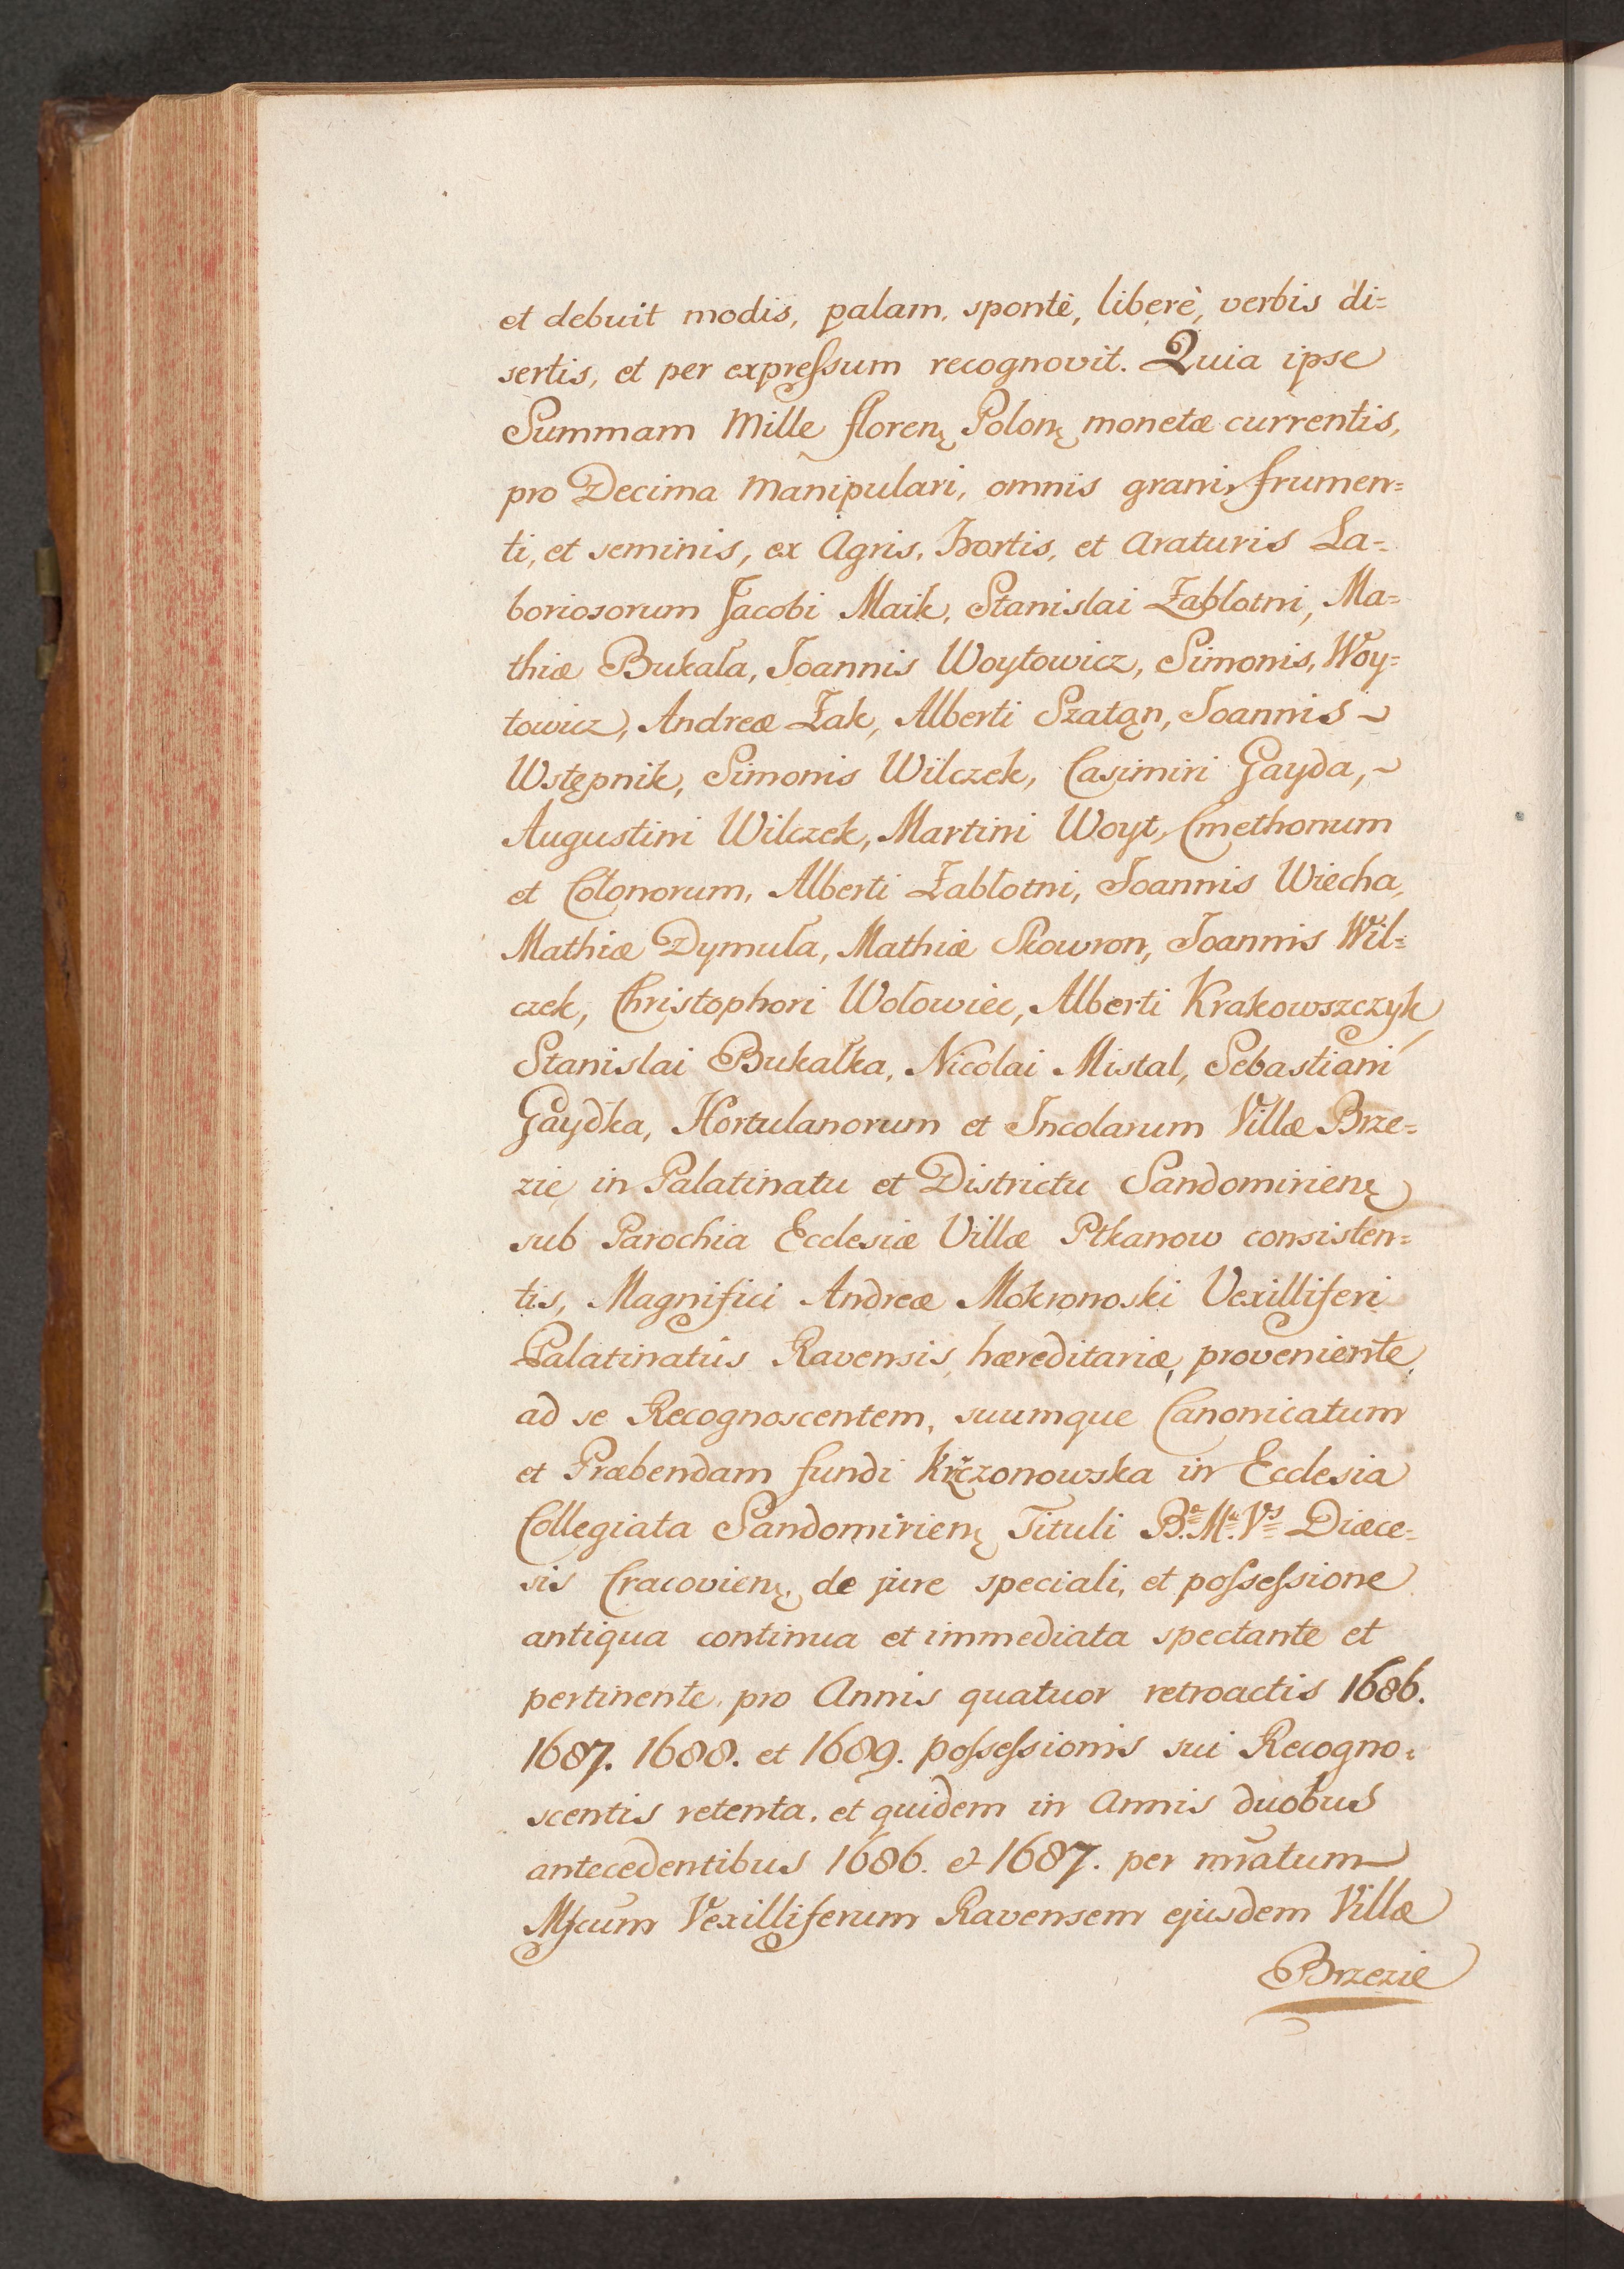 et debuit modis, palam, spontè, liberè, verbis di=
sertis, et per expreſsum recognovit. Quia ipse
Summam Mille florenę Polonę monetæ currentis,
pro Decima Manipulari, omnis grani, frumen=
ti, et seminis, ex Agris, Hortis, et Araturis La=
boriosorum Jacobi Maik, Stanislai Zabłotni, Ma=
thiæ Bukała, Joannis Woytowicz, Simonis, Woy=
towicz, Andreæ Żak, Alberti Szatąn, Joannis ~
Wstępnik, Simonis Wilczek, Casimiri Gayda, ~
Augustini Wilczek, Martini Woyt, Cmethonum
et Colonorum, Alberti Zabłotni, Joannis Wiecha,
Mathiæ Dymuła, Mathiæ Skowron, Joannis Wil=
czek, Christophori Wołowiec, Alberti Krakowszczyk,
Stanislai Bukałka, Nicolai Mistal, Sebastiani
Gaydka, Hortulanorum et Incolarum Villæ Brze=
zie in Palatinatu et Districtu Sandomirienę
sub Parochia Ecclesiæ Villæ Ptkanow consisten=
tis, Magnifici Andreæ Mokronoski Vexilliferi
Palatinatûs Ravensis, hæreditariæ, proveniente,
ad se Recognoscentem, suumque Canonicatum
et Præbendam fundi Krzczonowska in Ecclesia
Collegiata Sandomirienę Tituli B.æ M.æ V.s Diæce=
sis Cracovienę, de jure speciali, et poſseſsione
antiqua continua et immediata spectante et
pertinente, pro Annis quatuor retroactis 1686.
1687. 1688. et 1689. poſseſsionis sui Recogno=
scentis retenta, et quidem in Annis duobus
antecedentibus 1686. et 1687. per mratum
Mfcum Vexilliferum Ravensem ejusdem Villæ
Brzezie